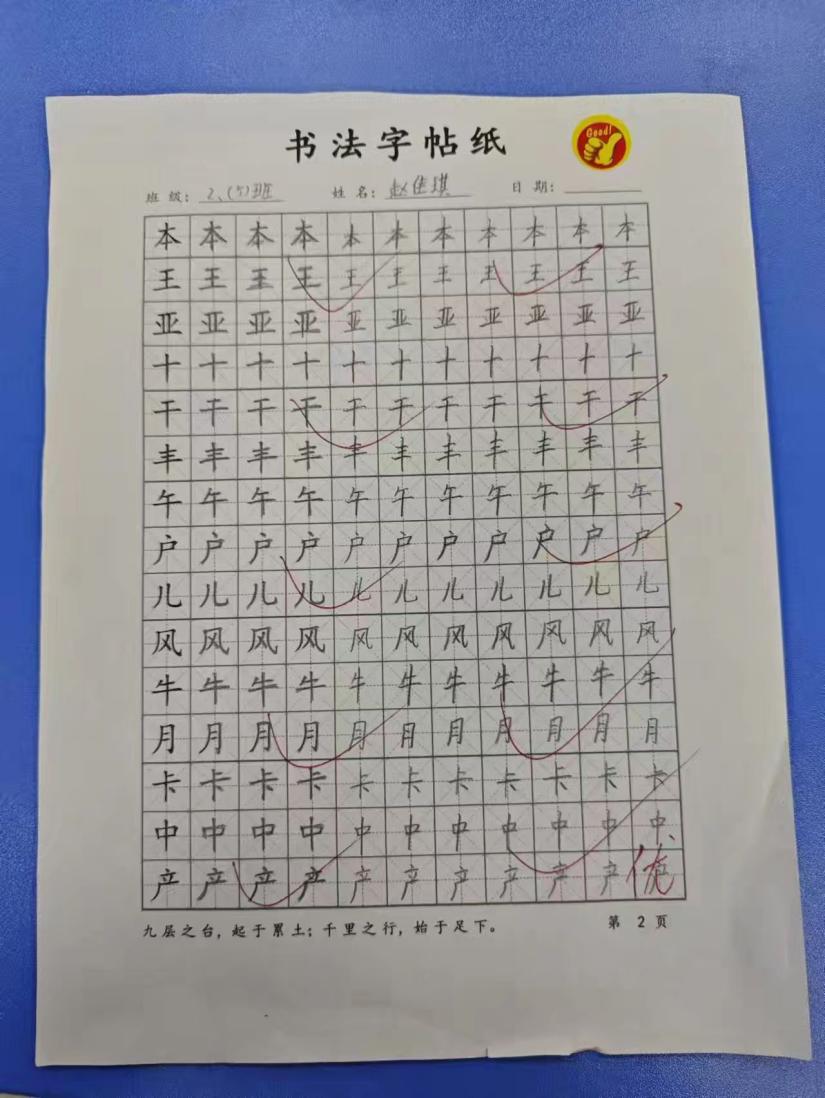 书法字帖纸
Good!
班级: 2、(5)班 姓名: 赵佳琪 日期:
本本本本本本本本本本本
王王王王王王王王王王王
亚亚亚亚亚亚亚亚亚亚亚
十十十十十十十十十十十
干干干干干干干干干干干
丰丰丰丰丰丰丰丰丰丰丰
午午午午午午午午午午午
户户户户户户户户户户户
儿儿儿儿儿儿儿儿儿儿儿
风风风风风风风风风风风
牛牛牛牛牛牛牛牛牛牛牛
月月月月月月月月月月月
卡卡卡卡卡卡卡卡卡卡卡
中中中中中中中中中中中
产产产产产产产产产产优
九层之台，起于累土；千里之行，始于足下。 第 2 页